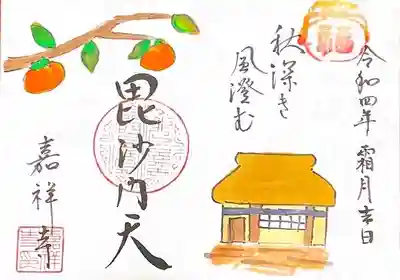 令和四年 霜月吉日
秋深き
風澄む
毘沙门天
嘉祥寺
福